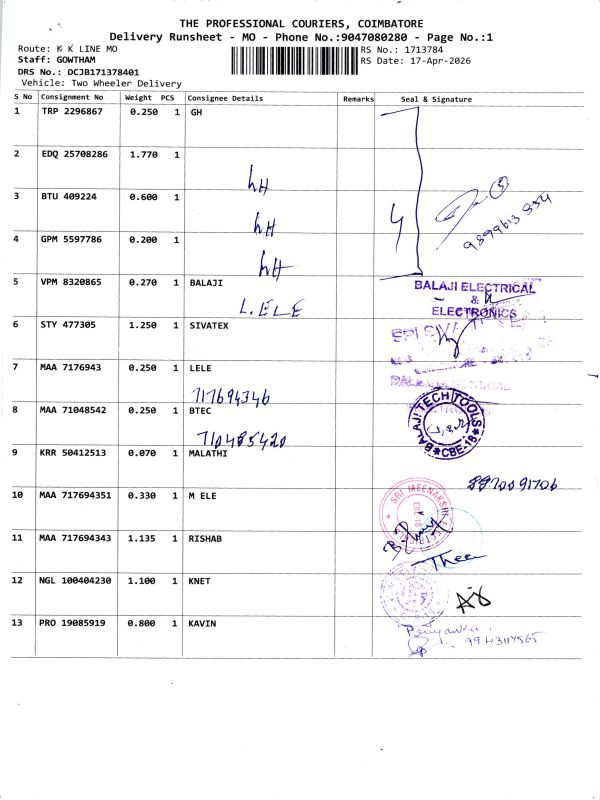 THE PROFESSIONAL COURIERS, COIMBATORE
Delivery Runsheet - MO - Phone No.:9047080280 - Page No.:1
Route: K K LINE MO
RS No.: 1713784
Staff: GOWTHAM
RS Date: 17-Apr-2026
DRS No.: DCJB171378401
Vehicle: Two Wheeler Delivery
S No Consignment No Weight PCS Consignee Details Remarks Seal & Signature
1 TRP 2296867 0.250 1 GH
2 EDQ 25708286 1.770 1
hH
3 BTU 409224 0.600 1
hH
4 GPM 5597786 0.200 1
hH
9899613 834
5 VPM 8320865 0.270 1 BALAJI
L.ELE
BALAJI ELECTRICAL
&
ELECTRONICS
6 STY 477305 1.250 1 SIVATEX
7 MAA 7176943 0.250 1 LELE
717694346
8 MAA 71048542 0.250 1 BTEC
710485420
BALAJI TECH TOOLS
CBE-18
9 KRR 50412513 0.070 1 MALATHI
10 MAA 717694351 0.330 1 M ELE
SRI MEENAKSHI
11 MAA 717694343 1.135 1 RISHAB
12 NGL 100404230 1.100 1 KNET
13 PRO 19085919 0.800 1 KAVIN
Priyanka